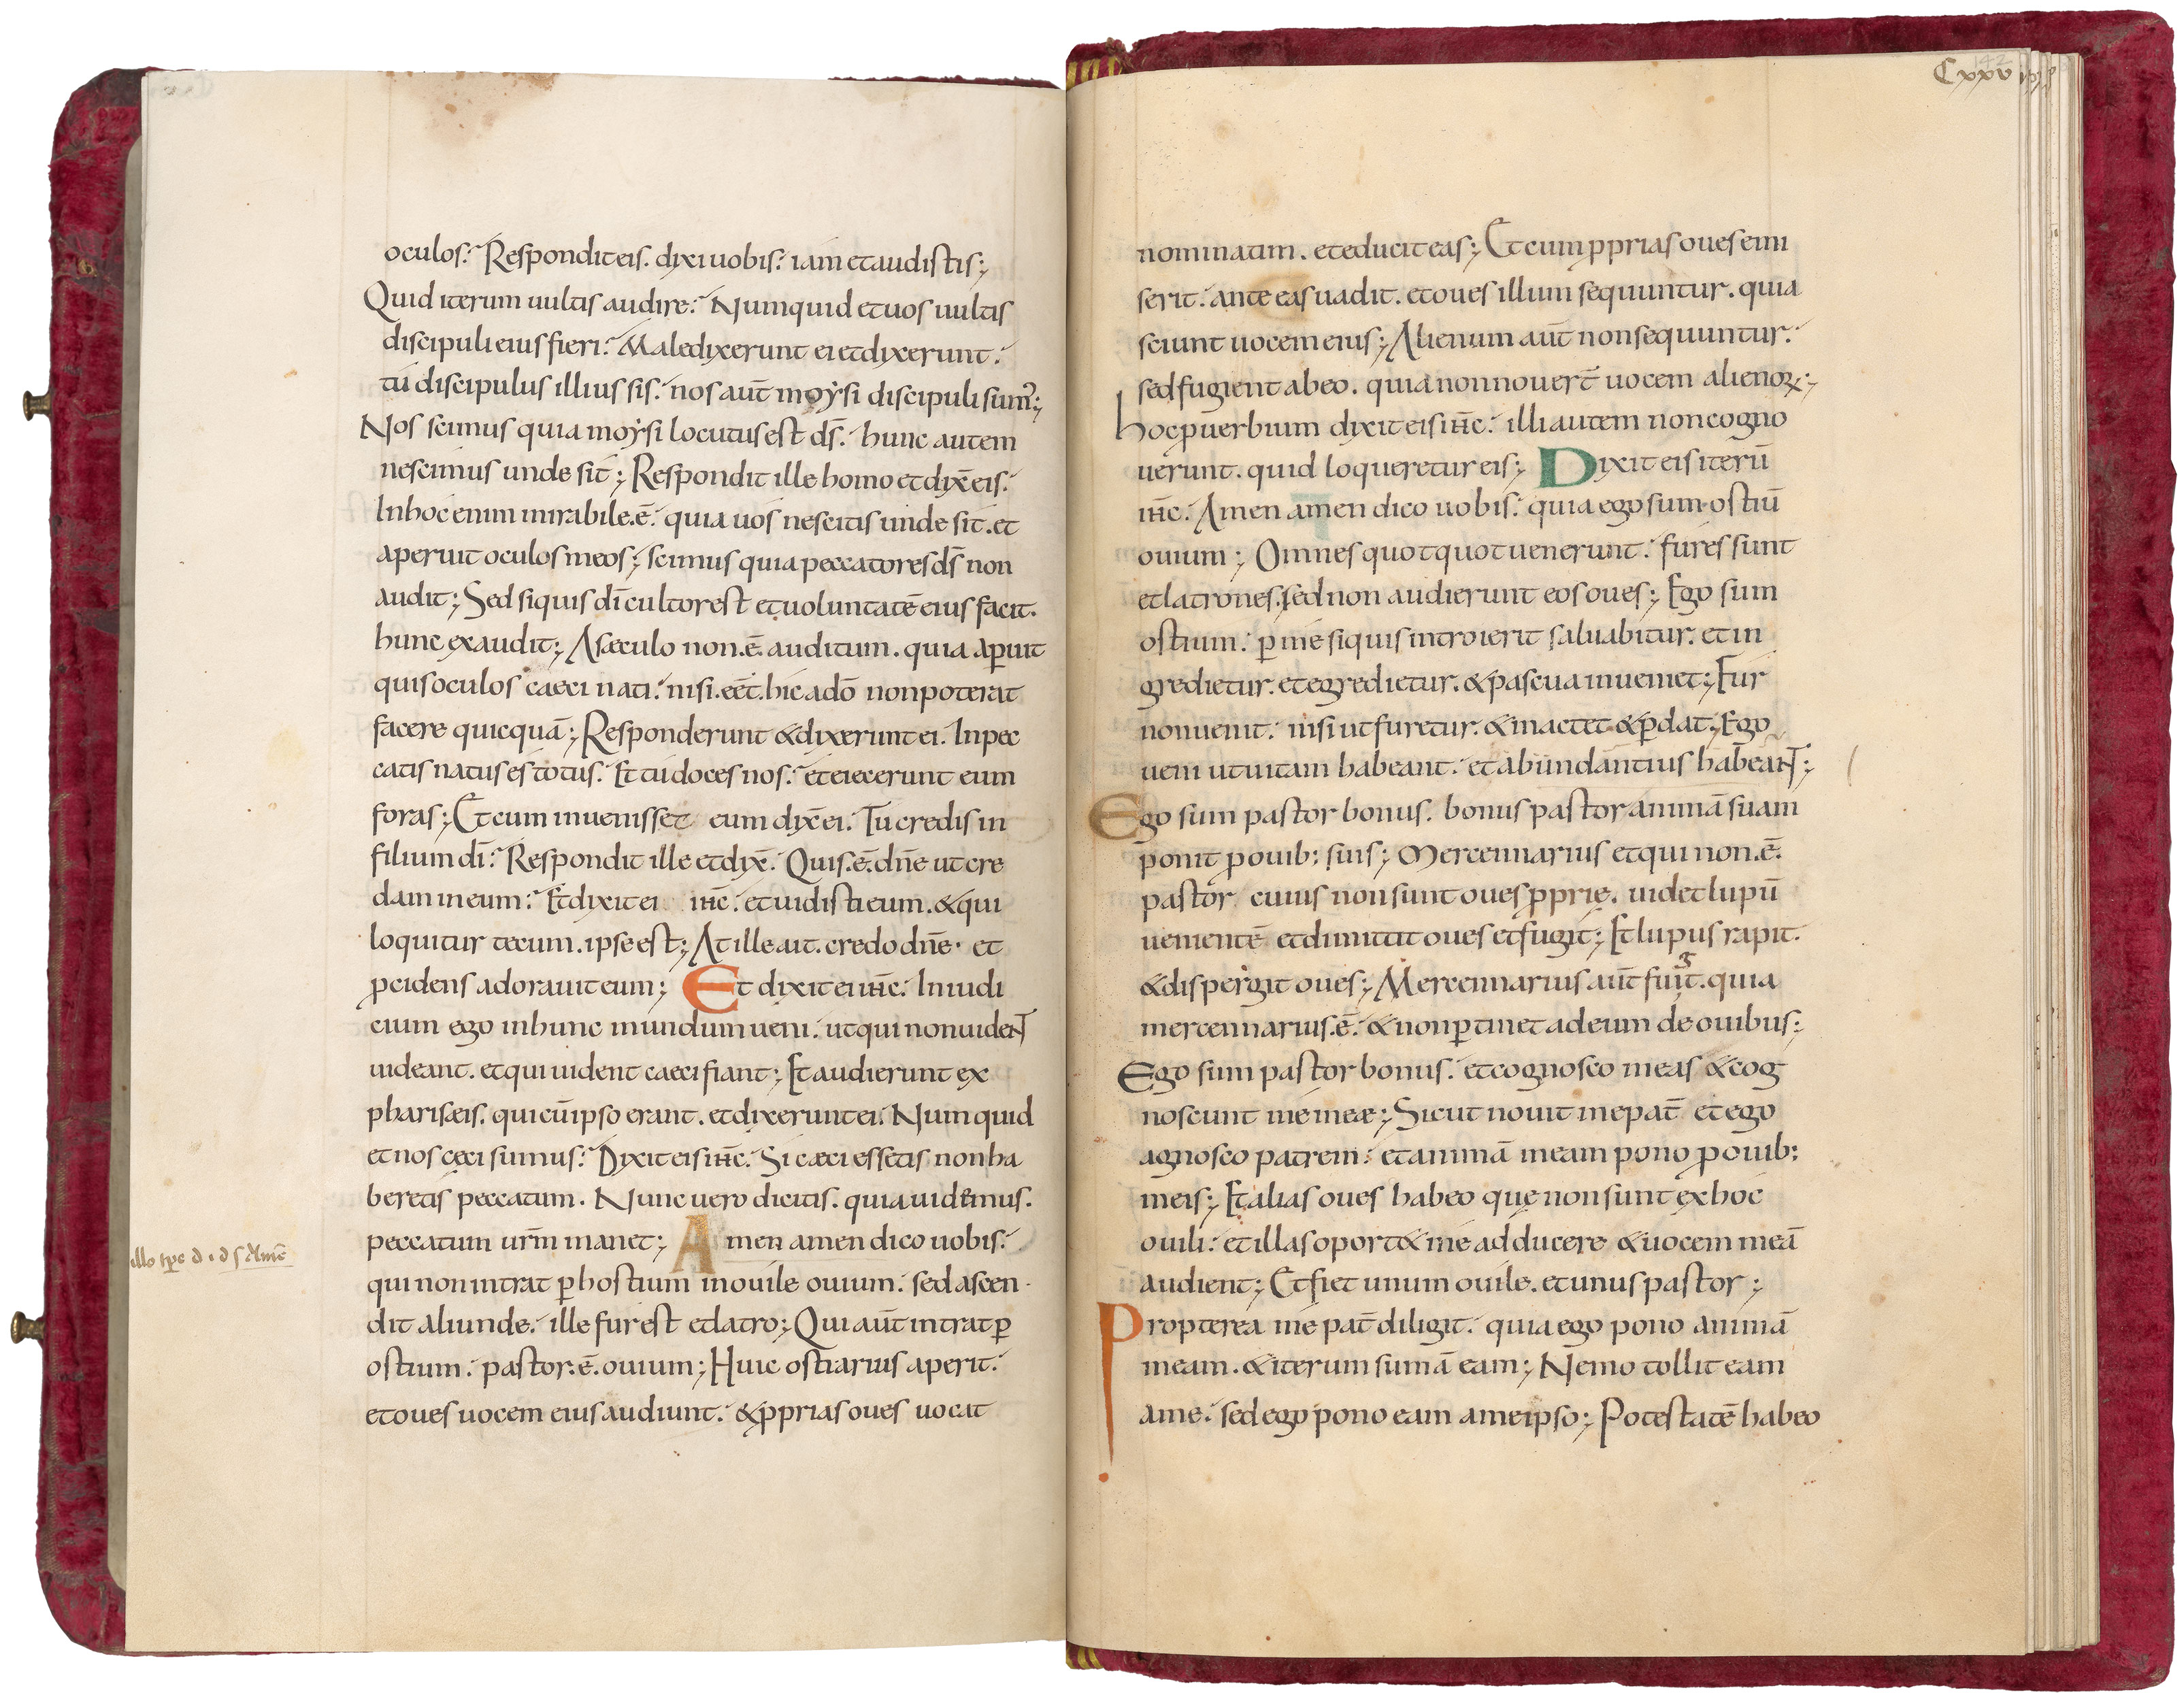 oculos? Respondit eis. dixi uobis? iam et audistis;
Quid iterum uultis audire? Numquid et uos uultis
discipuli eius fieri? Maledixerunt ei et dixerunt.
tu discipulus illius sis. nos aut̄ moẏsi discipuli sum᷒;
Nos scimus quia moẏsi locutus est ds̄. hunc autem
nescimus unde sit; Respondit ille homo et dix̄ eis.
In hoc enim mirabile .ē. quia uos nescitis unde sit. et
aperuit oculos meos; scimus quia peccatores ds̄ non
audit; Sed si quis dī cultor est et uoluntatē eius facit.
hunc exaudit; A sæculo non .ē. auditum. quia aꝑuit
quis oculos caeci nati. nisi .eēt. hic a dō non poterat
facere quicquā; Responderunt & dixerunt ei. In pec
catis natus es totus. Et tu doces nos? et eiecerunt eum
foras; Et cum inuenisset eum dix̄ ei. Tu credis in
filium dī? Respondit ille et dix̄. Quis .ē. dn̄e ut cre
dam in eum? Et dixit ei ih̄c. et uidisti eum. & qui
loquitur tecum. ipse est; At ille ait. credo dn̄e. et
ꝓcidens adorauit eum; Et dixit ei ih̄c. In iudi
cium ego in hunc mundum ueni. ut qui non uident
uideant. et qui uident caeci fiant; Et audierunt ex
pharisæis. qui cū ipso erant. et dixerunt ei. Num quid
et nos cęci sumus? Dixit eis ih̄c. Si cæci essetis non ha
beretis peccatum. Nunc uero dicitis. quia uidemus.
peccatum ur̄m manet; Amen amen dico uobis.
qui non intrat ꝑ hostium in ouile ouium. sed ascen
dit aliunde. ille fur est et latro; Qui aut̄ intrat ꝑ
ostium. pastor .ē. ouium; Huic ostiarius aperit.
et oues uocem eius audiunt. & ꝓprias oues uocat
Cxxv
142
nominatim. et educit eas; Et cum ꝓprias oues emi
serit. ante eas uadit. et oues illum sequuntur. quia
sciunt uocem eius; Alienum aut̄ non sequuntur.
sed fugient ab eo. quia non nouert̄ uocem alienoꝝ;
hoc ꝓuerbium dixit eis ih̄c. illi autem non cogno
uerunt. quid loqueretur eis; Dixit eis iterū
ih̄c. Amen amen dico uobis. quia ego sum ostiū
ouium; Omnes quotquot uenerunt. fures sunt
et latrones. sed non audierunt eos oues; Ego sum
ostium. ꝑ me si quis introierit saluabitur. et in
gredietur. et egredietur. & pascua inueniet; Fur
non uenit. nisi ut furetur. & mactet & ꝑdat; Ego
ueni ut uitam habeant. et abundantius habeant;
Ego sum pastor bonus. bonus pastor animā suam
ponit ꝓ ouib: suis; Mercennarius et qui non .ē.
pastor cuius non sunt oues ꝓprię. uidet lupū
uenientē et dimittit oues et fugit; Et lupus rapit.
& dispergit oues; Mercennarius aut̄ fugit. quia
mercennarius .ē. & non ꝑtinet ad eum de ouibus;
Ego sum pastor bonus. et cognosco meas & cog
noscunt me meæ; Sicut nouit me pat̄ et ego
agnosco patrem. et animā meam pono ꝓ ouib:
meis; Et alias oues habeo quę non sunt ex hoc
ouili. et illas oport& me adducere & uocem meā
audient; Et fiet unum ouile. et unus pastor;
Propterea me pat̄ diligit. quia ego pono animā
meam. & iterum sumā eam; Nemo tollit eam
a me. sed ego pono eam a me ipso; Potestatē habeo